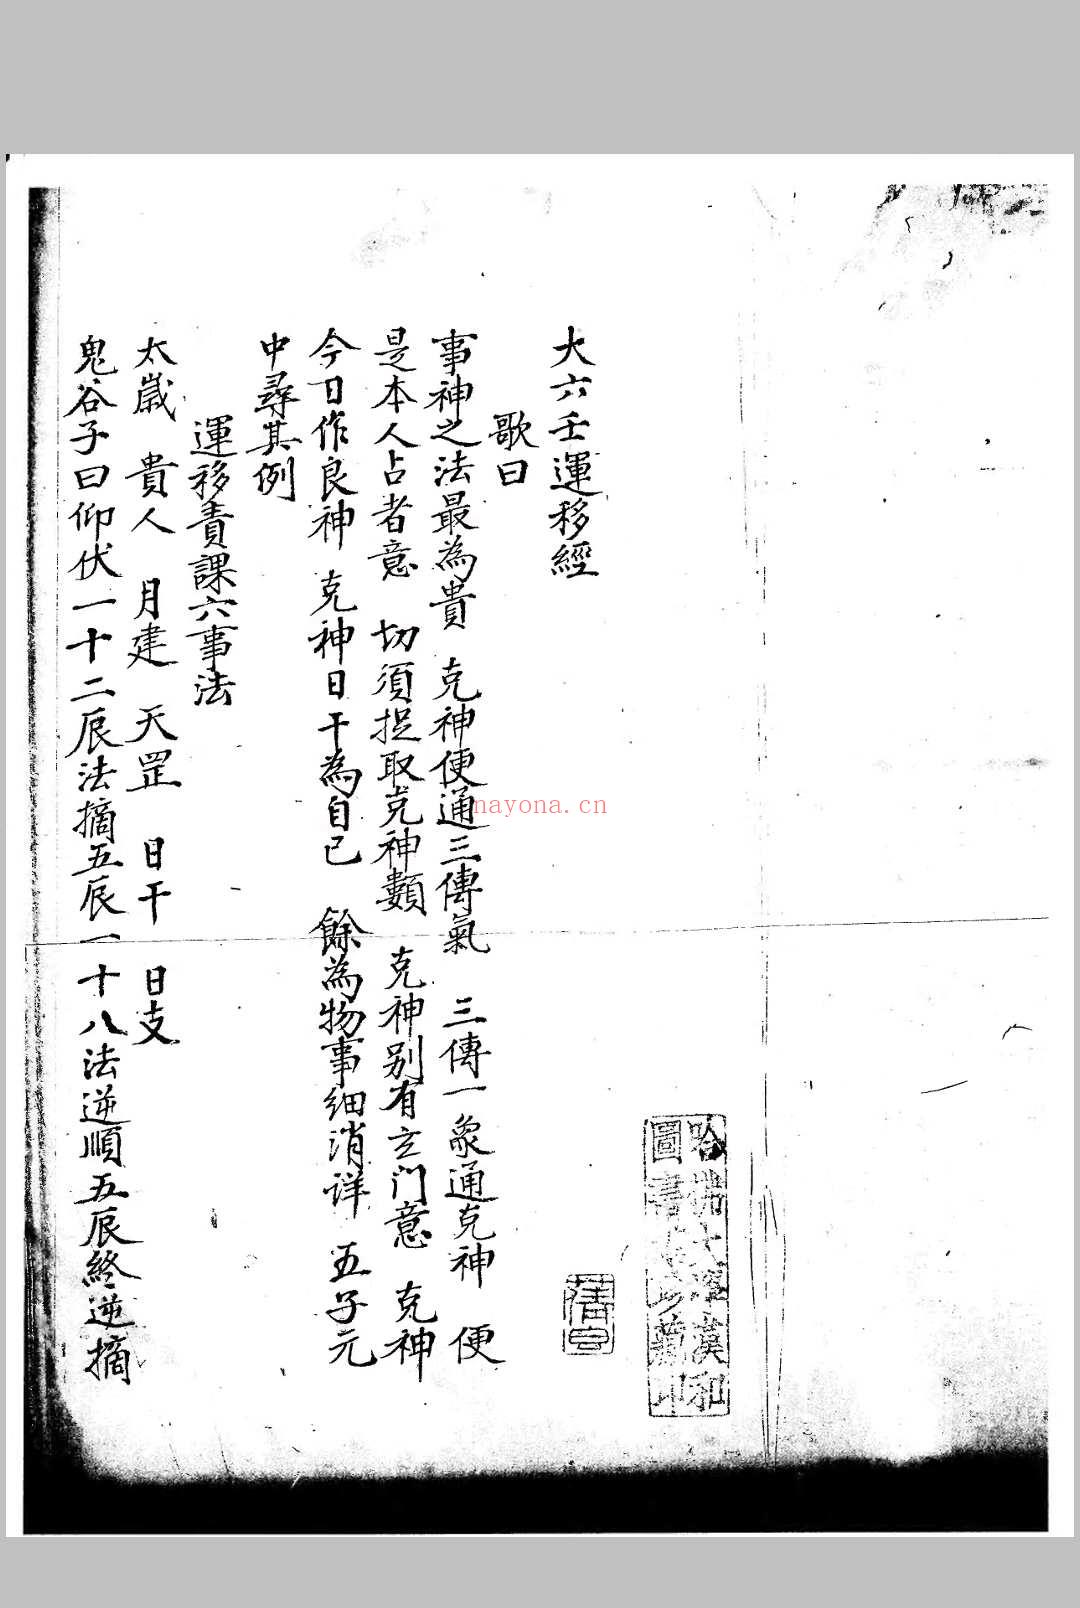 大六壬運移經
歌曰
事神之法最為貴 克神便通三傳氣 三傳一象通克神 便
是本人占者意 切須捉取克神類 克神别有玄门意 克神
今日作良神 克神日干為自己 餘為物事细消详 五子元
中尋其例
運移責課六事法
太歲 貴人 月建 天罡 日干 日支
鬼谷子曰仰伏一十二辰法摘五辰一十八法逆順五辰終逆摘
哈佛大學漢和
圖書館珍藏印
nayona.cn